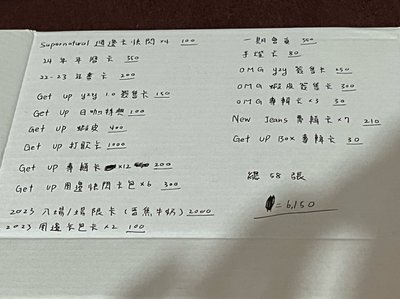 Supernatural 週邊卡快閃 x4 100
24年年曆卡 350
22-23 年書卡 200
Get up yzy 1.0 簽售卡 150
Get up 日咖特典 100
Get up 蝦皮 400
Get up 打歌卡 1000
Get up 專輯卡 x12 200
Get up 周邊快閃卡包 x6 300
2023 入場/場限卡 (香蕉牛奶) 2000
2023 周邊卡包卡 x2 100
一期會員 350
手燈卡 80
OMG yzy 簽售卡 250
OMG 蝦皮簽售卡 300
OMG 專輯卡 x3 50
New Jeans 專輯卡 x7 210
Get up Box 專輯卡 30
總 58 張
=6,150